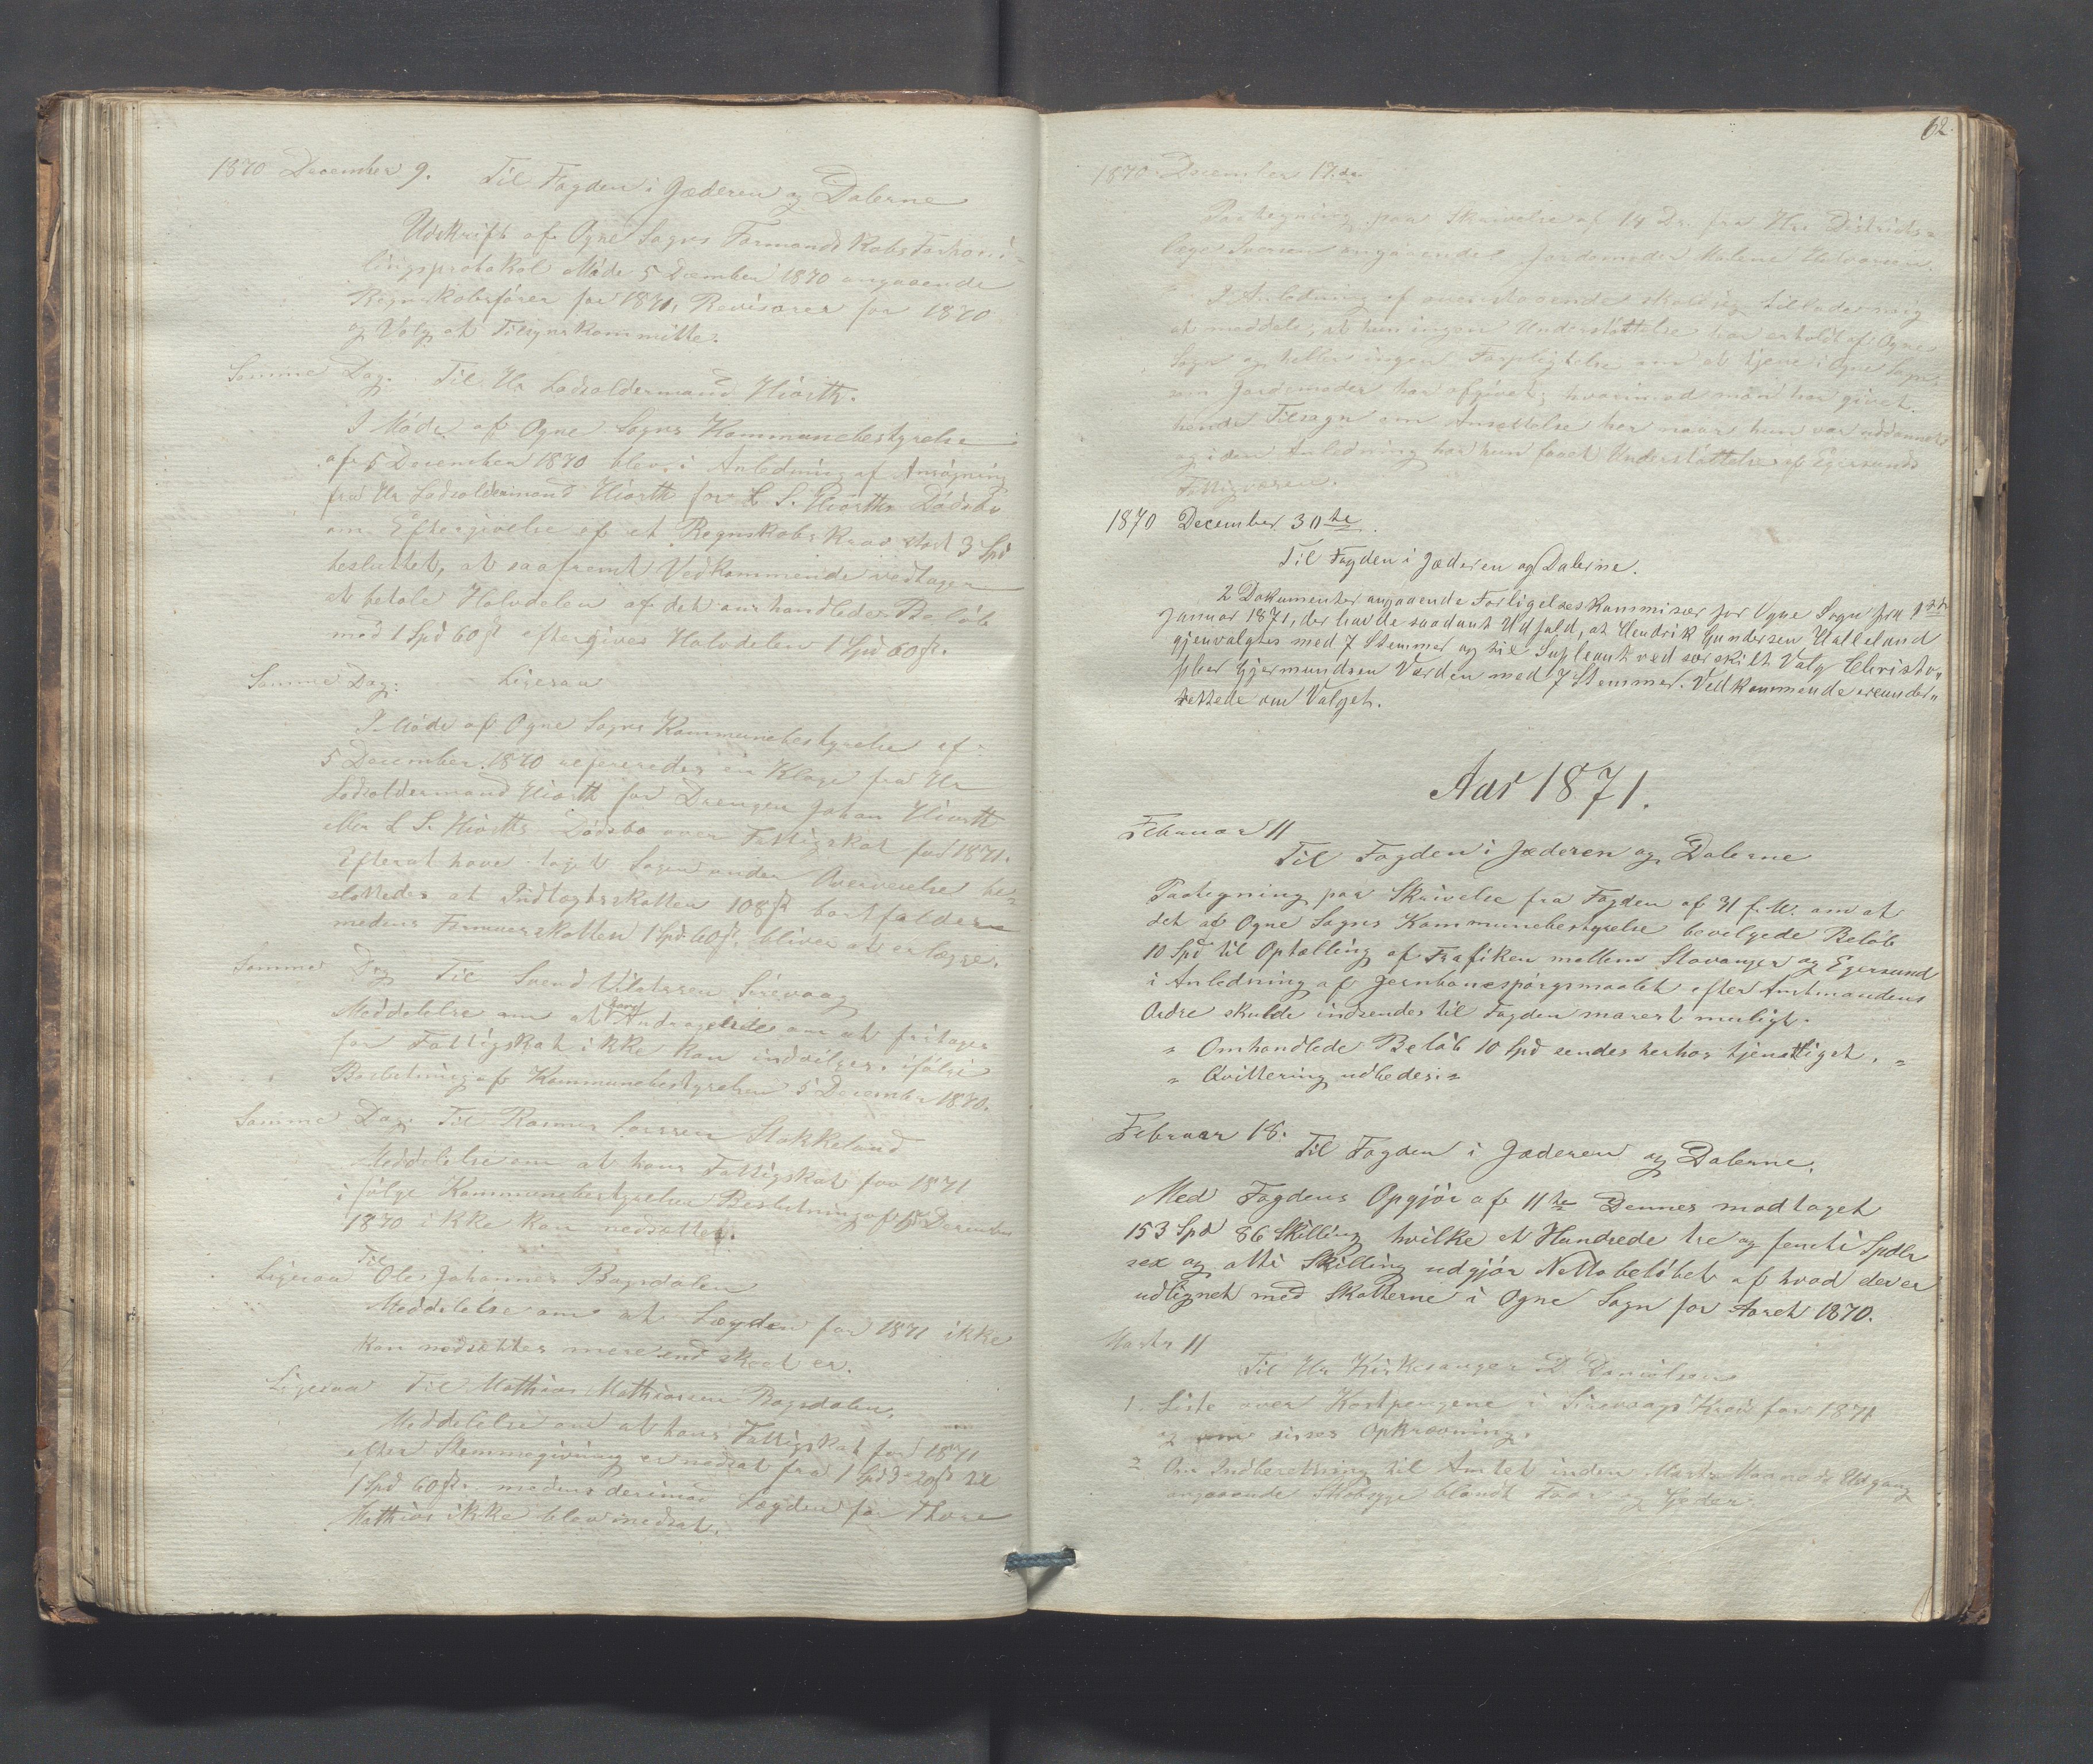 1870 December 9. Til Fogden i Jæderen og Dalerne
Udskrift af Ogne Sogns Formandskabs Forhand-
lingsprotokol Møde 5 December 1870 angaaende
Regnskabsfører for 1871, Revisorer for 1870
og Valg at Tilsynskommitte.
Samme Dag. Til Hr Lodsoldermand Hiorth.
I Møde af Ogne Sogns Kommunebestyrelse
af 5 December 1870 blev i Anledning af Ansøgning
fra Hr Lodsoldermand Hiorth for L S. Hiorths Dødsbo
om Eftergivelse af et Regnskabs Krav stort 3 Spd
besluttet, at saafremt Vedkommende vedtager
at betale Halvdelen af det omhandlede Beløb
med 1 Spd 60 ß eftergives Halvdelen 1 Spd 60 ß.
Samme Dag. Ligesaa
I Møde af Ogne Sogns Kommunebestyrelse af
5 December 1870 refereredes en Klage fra Hr
Lodsoldermand Hiorth for Drengen Johan Hiorth
eller L S. Hiorths Dødsbo over Fattigskat for 1871.
Efterat have taget Sagen under Overveielse be-
sluttedes at Indtægtsskatten 108 ß bortfalder
medens Formuesskatten 1 Spd 60 ß. bliver at erlægge.
Samme Dag Til Svend Sirevaag
Meddelelse om at hans Andragende om at fritages
for Fattigskat ikke kan indvilges, ifølge
Beslutning af Kommunebestyrelsen 5 Decemb. 1870.
Samme Dag. Til Rasmus Larsen Stokkeland
Meddelelse om at hans Fattigskat for 1871
i følge Kommunebestyrelsens Beslutning af 5 December
1870 ikke kan nedsættes.
Ligesaa Til Ole Johannes Bogsdalen
Meddelelse om at Lægden for 1871 ikke
kan nedsættes mere end skeet er.
Ligesaa Til Mathias Mathiassen Bogsdalen.
Meddelelse om at hans Fattigskat for 1871
efter Stemmegivning er nedsat fra 1 Spd 20 ß til
1 Spd 60 ß. medens derimod Lægden for Thore
Mathias ikke blev nedsat.
62.
1870. December 17. de
Paategning paa Skrivelse af 14 Ds. fra Hr. Districts-
læge Iversen angaaende Jordemoder Malene Halvorsen.
I Anledning af ovenstaaende skal jeg tillade mig
at meddele, at hun ingen Understøttelse har erholdt af Ogne
Sogn og heller ingen Forpligtelse om at tjene i Ogne Sogn
som Jordemoder har afgivet; hvorimod man har givet
hende Tilsagn om Ansættelse her naar hun var uddannet
og i den Anledning har hun faaet Understøttelse af Egersunds
Fattigvæsen.
1870 December 30te
Til Fogden i Jæderen og Dalerne.
2 Dokumenter angaaende Forligelseskommisær for Ogne Sogn fra 1ste
Januar 1871, der havde saadant Udfald, at Hendrik Gundersen Halleland
gjenvalgtes med 7 Stemmer og til Supleant ved særskilt Valg Christo„
pher Gjermundsen Varden med 7 Stemmer. Vedkommende ere under„
rettede om Valget.
Aar 1871.
Februar 11
Til Fogden i Jæderen og Dalerne
Paategning paa Skrivelse fra Fogden af 31 f. M. om at
det af Ogne Sogns Kommunebestyrelse bevilgede Beløb
10 Spd til Optælling af Trafiken mellem Stavanger og Egersund
i Anledning af Jernbanespørgsmaalet efter Amtmandens
Ordre skulde indsendes til Fogden snarest muligt.
" Omhandlede Beløb 10 Spd sendes herhos tjenstligst. "
" Qvittering udbedes. "
Februar 18.
Til Fogden i Jæderen og Dalerne.
Med Fogdens Opgjør af 11te Dennes modtaget
153 Spd 86 Skilling hvilke et Hundrede tre og femti Spdlr
sex og otti Skilling udgjør Nettobeløbet af hvad der er
udlignet med Skatterne i Ogne Sogn for Aaret 1870.
Marts 11
Til Hr Kirkesanger D Danielsen
1. Liste over Kostpengene i Sirevaags Kreds for 1871
2 om disses Opkrævning.
2 Om Indberetning til Amtet inden Marts Maaneds Udgang
angaaende Skabsyge blandt Faar og Gjeder.